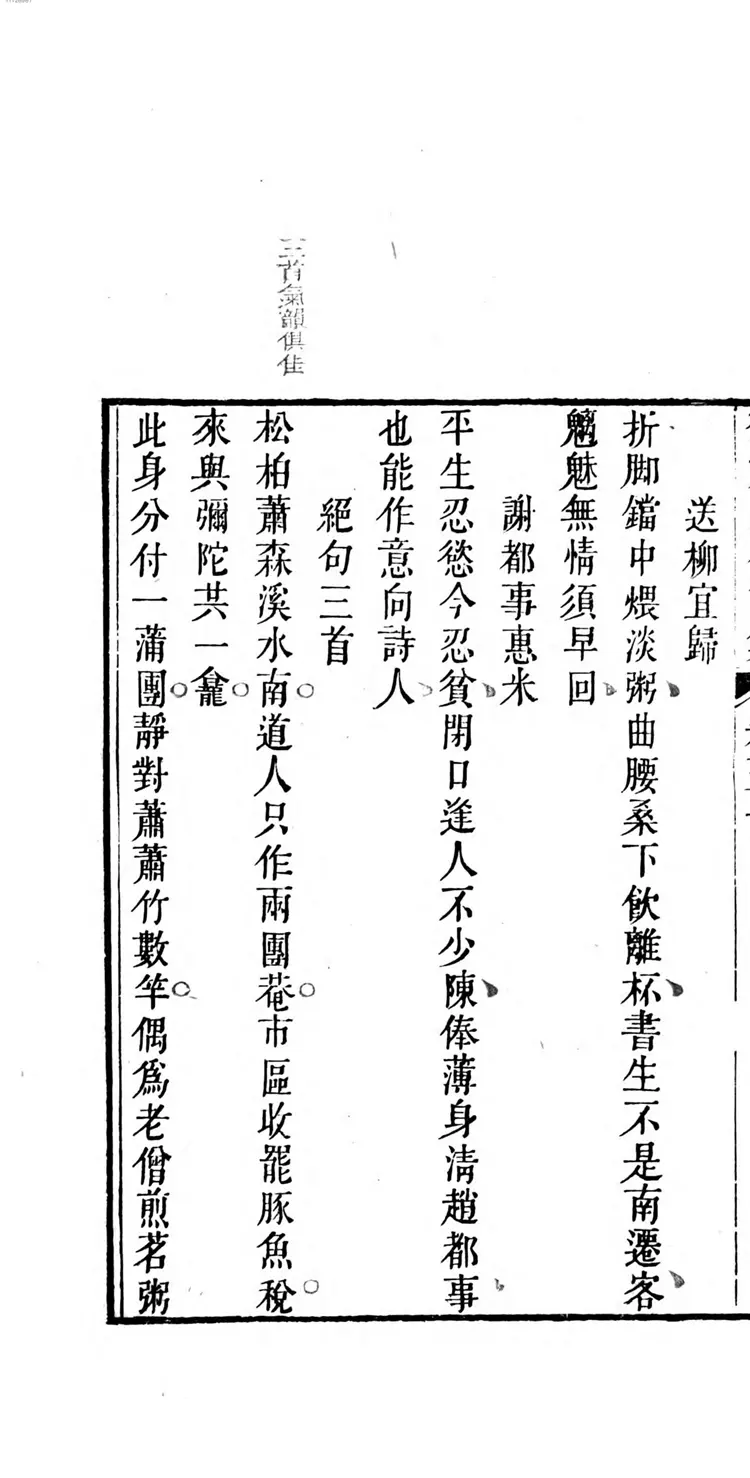 送柳宜歸
折脚鐺中煨淡粥曲腰桑下飲離杯書生不是南遷客
魑魅無情須早回
謝都事惠米
平生忍慾今忍貧閉口逢人不少陳俸薄身清趙都事
也能作意向詩人
絕句三首
三首氣韻俱佳
松柏蕭森溪水南道人只作兩團菴市區收罷豚魚稅
來與彌陀共一龕
此身分付一蒲團靜對蕭蕭竹數竿偶爲老僧煎茗粥